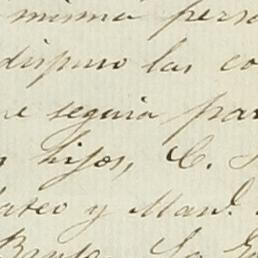 misma perso
dispuso las co
e seguia par
hijos, C.
ateo y Man.